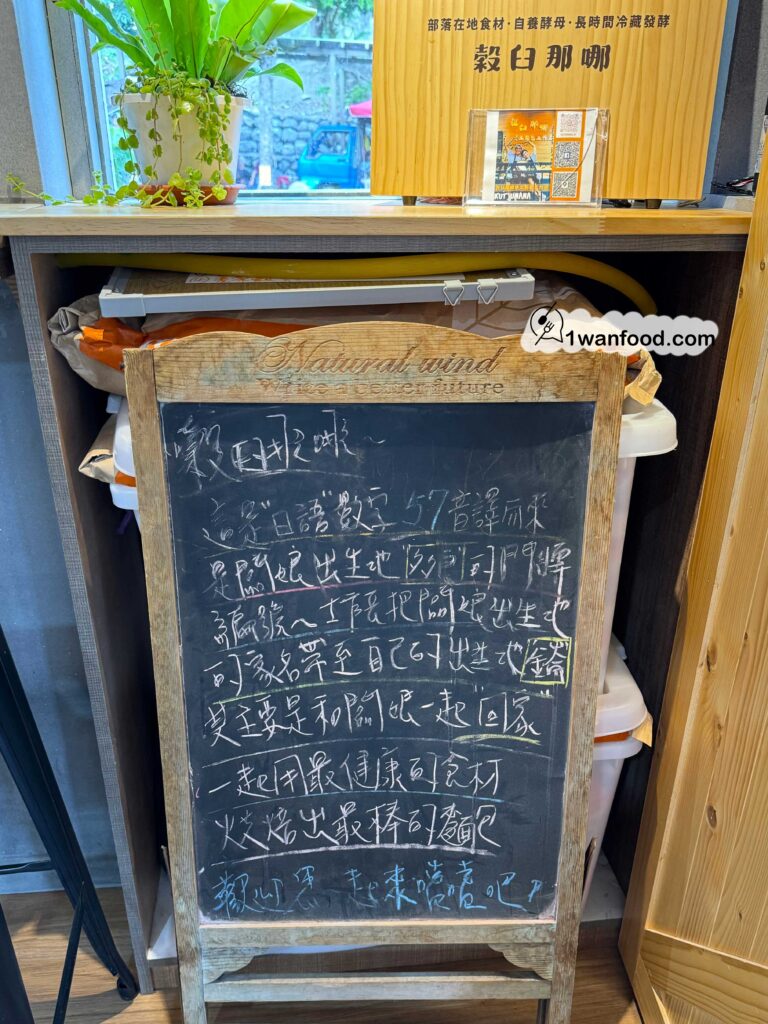 部落在地食材·自養酵母·長時間冷藏發酵
穀臼那哪
KUTJUNANA
1wanfood.com
Natural wind
Write a better future
穀臼那哪~
這是"日語"數字57音譯而來
是闆娘出生地的門牌
編號~ 師長把闆娘出生地
的家名帶至自己的出生地
其主要是和闆娘一起"回家"
一起用最健康的食材
烘焙出最棒的麵包
歡迎您一起來嚐嚐吧!